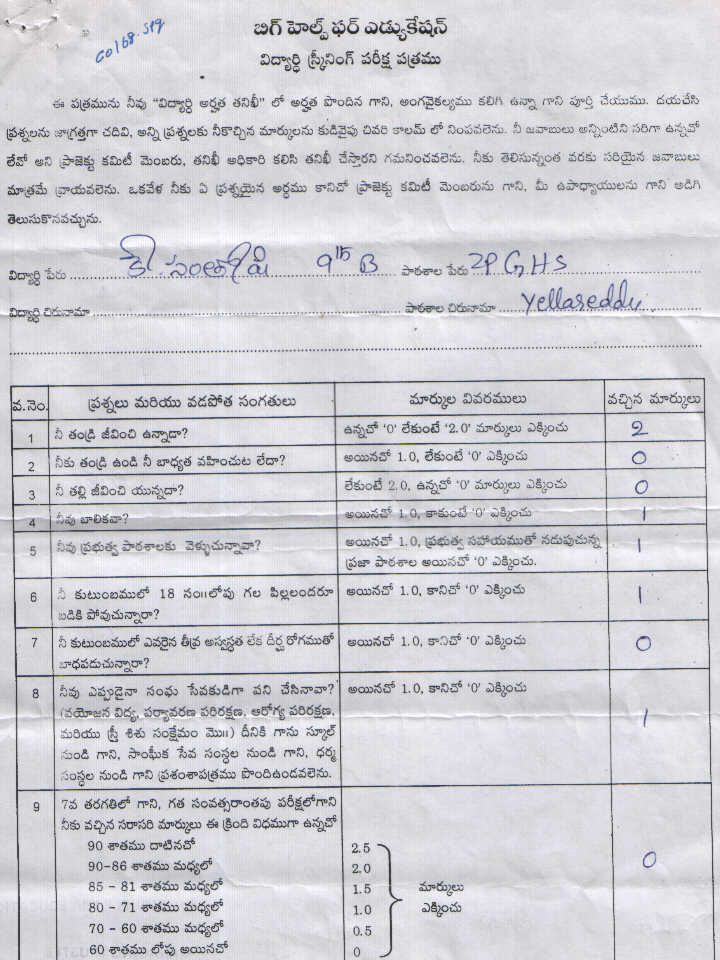 బిగ్ హెల్ప్ ఫర్ ఎడ్యుకేషన్
విద్యార్ధి స్క్రీనింగ్ పరీక్ష పత్రము
ఈ పత్రమును నీవు "విద్యార్ధి అర్హత తనిఖీ" లో అర్హత పొందిన గాని, అంగవైకల్యము కలిగి ఉన్నా గాని పూర్తి చేయుము. దయచేసి
ప్రశ్నలను జాగ్రత్తగా చదివి, అన్ని ప్రశ్నలకు నీకొచ్చిన మార్కులను కుడివైపు చివరి కాలమ్ లో నింపవలెను. నీ జవాబులు అన్నింటిని సరిగా ఉన్నవో
లేవో అని ప్రాజెక్టు కమిటీ మెంబరు, తనిఖీ అధికారి కలిసి తనిఖీ చేస్తారని గమనించవలెను. నీకు తెలిసున్నంత వరకు సరియైన జవాబులు
మాత్రమే వ్రాయవలెను. ఒకవేళ నీకు ఏ ప్రశ్నయైన అర్ధము కానిచో ప్రాజెక్టు కమిటీ మెంబరును గాని, మీ ఉపాధ్యాయులను గాని అడిగి
తెలుసుకొనవచ్చును.
విద్యార్ధి పేరు 9th B పాఠశాల పేరు ZP G HS
విద్యార్ధి చిరునామా పాఠశాల చిరునామా Yellareddy
వ.నెం. ప్రశ్నలు మరియు వడపోత సంగతులు మార్కుల వివరములు వచ్చిన మార్కులు
1 నీ తండ్రి జీవించి ఉన్నాడా? ఉన్నచో '0' లేకుంటే '2.0' మార్కులు ఎక్కించు 2
2 నీకు తండ్రి ఉండి నీ బాధ్యత వహించుట లేదా? అయినచో 1.0, లేకుంటే '0' ఎక్కించు 0
3 నీ తల్లి జీవించి యున్నదా? లేకుంటే 2.0, ఉన్నచో '0' మార్కులు ఎక్కించు 0
4 నీవు బాలికవా? అయినచో 1.0, కాకుంటే '0' ఎక్కించు 1
5 నీవు ప్రభుత్వ పాఠశాలకు వెళ్ళుచున్నావా? అయినచో 1.0, ప్రభుత్వ సహాయముతో నడుపుచున్న 1
ప్రజా పాఠశాల అయినచో '0' ఎక్కించు.
6 నీ కుటుంబములో 18 సం॥లోపు గల పిల్లలందరూ అయినచో 1.0, కానిచో '0' ఎక్కించు 1
బడికి పోవుచున్నారా?
7 నీ కుటుంబములో ఎవరైన తీవ్ర అస్వస్థత లేక దీర్ఘ రోగముతో అయినచో 1.0, కానిచో '0' ఎక్కించు 0
బాధపడుచున్నారా?
8 నీవు ఎప్పుడైనా సంఘ సేవకుడిగా పని చేసినావా? అయినచో 1.0, కానిచో '0' ఎక్కించు
(వయోజన విద్య, పర్యావరణ పరిరక్షణ, ఆరోగ్య పరిరక్షణ,
మరియు స్త్రీ శిశు సంక్షేమం మొ॥) దీనికి గాను స్కూల్ 1
నుండి గాని, సాంఘీక సేవ సంస్థల నుండి గాని, ధర్మ
సంస్థల నుండి గాని ప్రశంశాపత్రము పొందిఉండవలెను.
9 7వ తరగతిలో గాని, గత సంవత్సరాంతపు పరీక్షలోగాని
నీకు వచ్చిన సరాసరి మార్కులు ఈ క్రింది విధముగా ఉన్నచో
90 శాతము దాటినచో 2.5
90-86 శాతము మధ్యలో 2.0 0
85 - 81 శాతము మధ్యలో 1.5 మార్కులు
80 - 71 శాతము మధ్యలో 1.0 ఎక్కించు
70 - 60 శాతము మధ్యలో 0.5
60 శాతము లోపు అయినచో 0